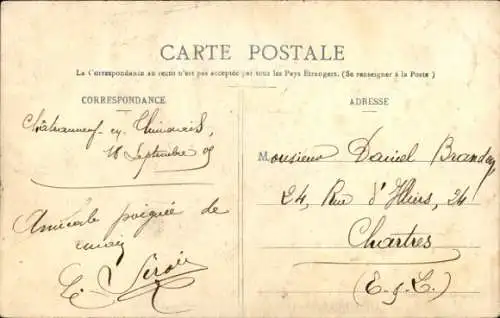 CARTE POSTALE
La Correspondance au recto n'est pas acceptée par tous les Pays Etrangers. (Se renseigner à la Poste)
CORRESPONDANCE
Châteauneuf-en-Thimerais,
18 Septembre 05
Amicale poignée de
main
E.
ADRESSE
Monsieur Daniel
24, Rue d'Illiers, 24
Chartres
(E-&-L.)